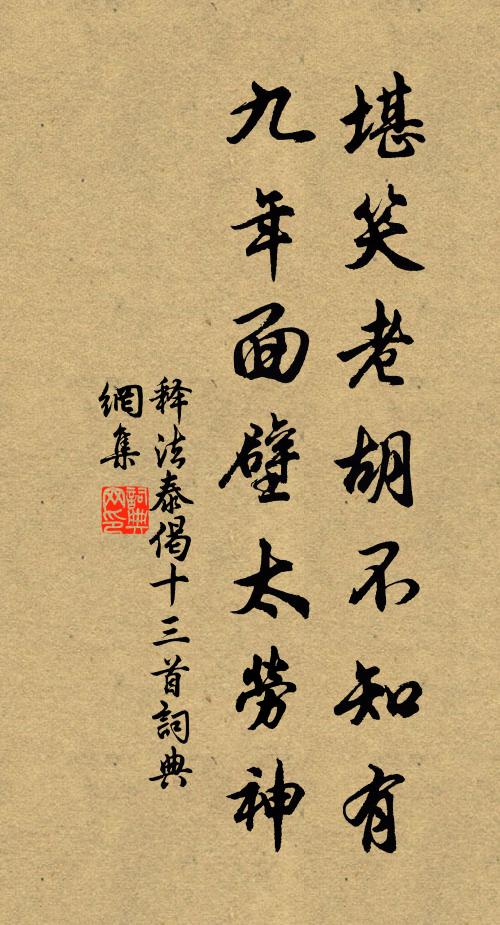 堪笑老胡不知有
九年面壁太勞神
释法泰偈十三首詞典
網集
詞典
网印